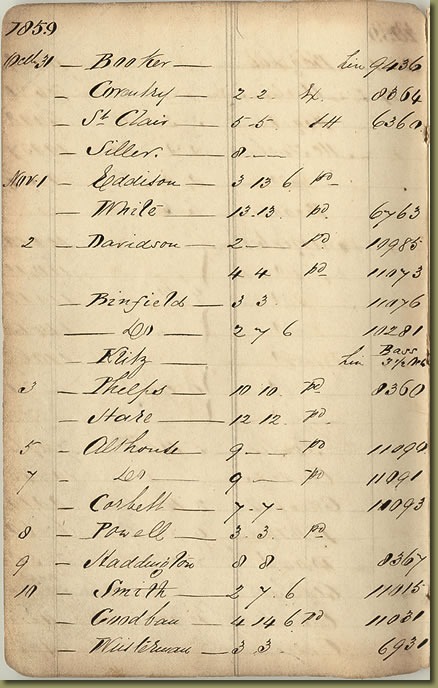 1859
Octr 31 — Booker — Lin 9436
— Coventry — 2 - 2 - 8364
— St Clair — 5 - 5 6360
— Siller. — 8 —
Nov 1 — Eddison — 3 13 6 pd
— White — 13 - 13 . pd 6763
2 — Davidson — 2 — pd 10985
4 4 pd 11073
— Binfield — 3 3 11076
— Do — 2 7 6 10281
— Klitz — Lin Bass
3 — Phelps — 10 10 . pd 8360
— Hare — 12 12 . pd
5 — Althouse — 9 — pd 11090
7 — Do — 9 — pd 11091
— Corbett — 7 - 7 - 11093
8 — Powell — 3 . 3 . pd
9 — Haddington 8 8 8367
10 — Smith — 2 7 6 11015
— Goodban — 4 14 6 pd 11031
— Wusterman — 3 3 6931